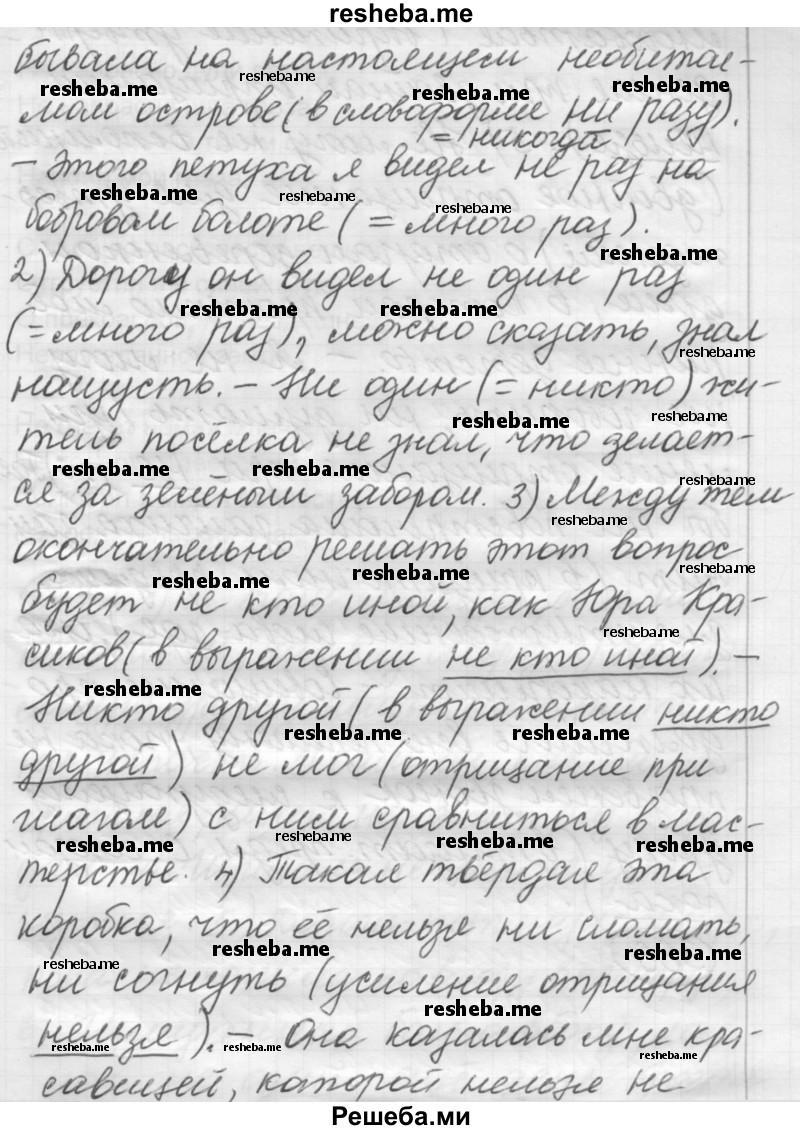 resheba.me
бывала на настоящем необитае-
мом острове (в словоформе ни разу).
= никогда
– Этого петуха я видел не раз на
бобровом болоте (= много раз).
2) Дорогу он видел не один раз
(= много раз), можно сказать, знал
наизусть. – Ни один (= никто) жи-
тель посёлка не знал, что делает-
ся за зелёным забором. 3) Между тем
окончательно решать этот вопрос
будет не кто иной, как Юра Кра-
сиков (в выражении не кто иной). –
Никто другой (в выражении никто
другой) не мог (отрицание при
глаголе) с ним сравниться в мас-
терстве. 4) Такая твёрдая эта
коробка, что её нельзя ни сломать,
ни согнуть (усиление отрицания
нельзя). – Она казалась мне кра-
савицей, которой нельзя не
Решеба.ми